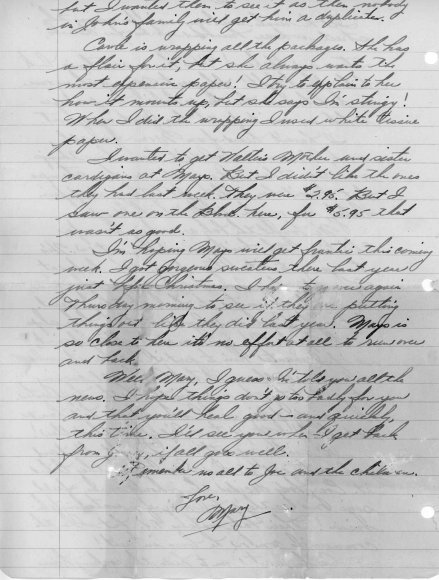 but I wanted them to see it as then nobody
in John's family will get him a duplicate.
Carole is wrapping all the packages. She has
a flair for it, but she always wants the
most expensive paper! I try to explain to her
how it mounts up, but she says I'm stingy!
When I did the wrapping I used white tissue
paper.
I wanted to get Mother and sister
cardigans at Mays. But I didn't like the ones
they had last week. They were $2.95. But I
saw one on the here, for $5.95 that
wasn't so good.
I'm hoping Mays will get frantic this coming
week. I got gorgeous sweaters there last year
just before Christmas. I again
Thursday morning to see if they're putting
things out like they did last year. Mays is
so close to here it's no effort at all to run over
and back.
Well, Mary, I guess I've told you all the
news. I hope things don't go too badly for you
and that you'll heal good - and quickly
this time. I'll see you when I get back
from , if all goes well.
Remember us all to Joe and the children.
Love,
Mary